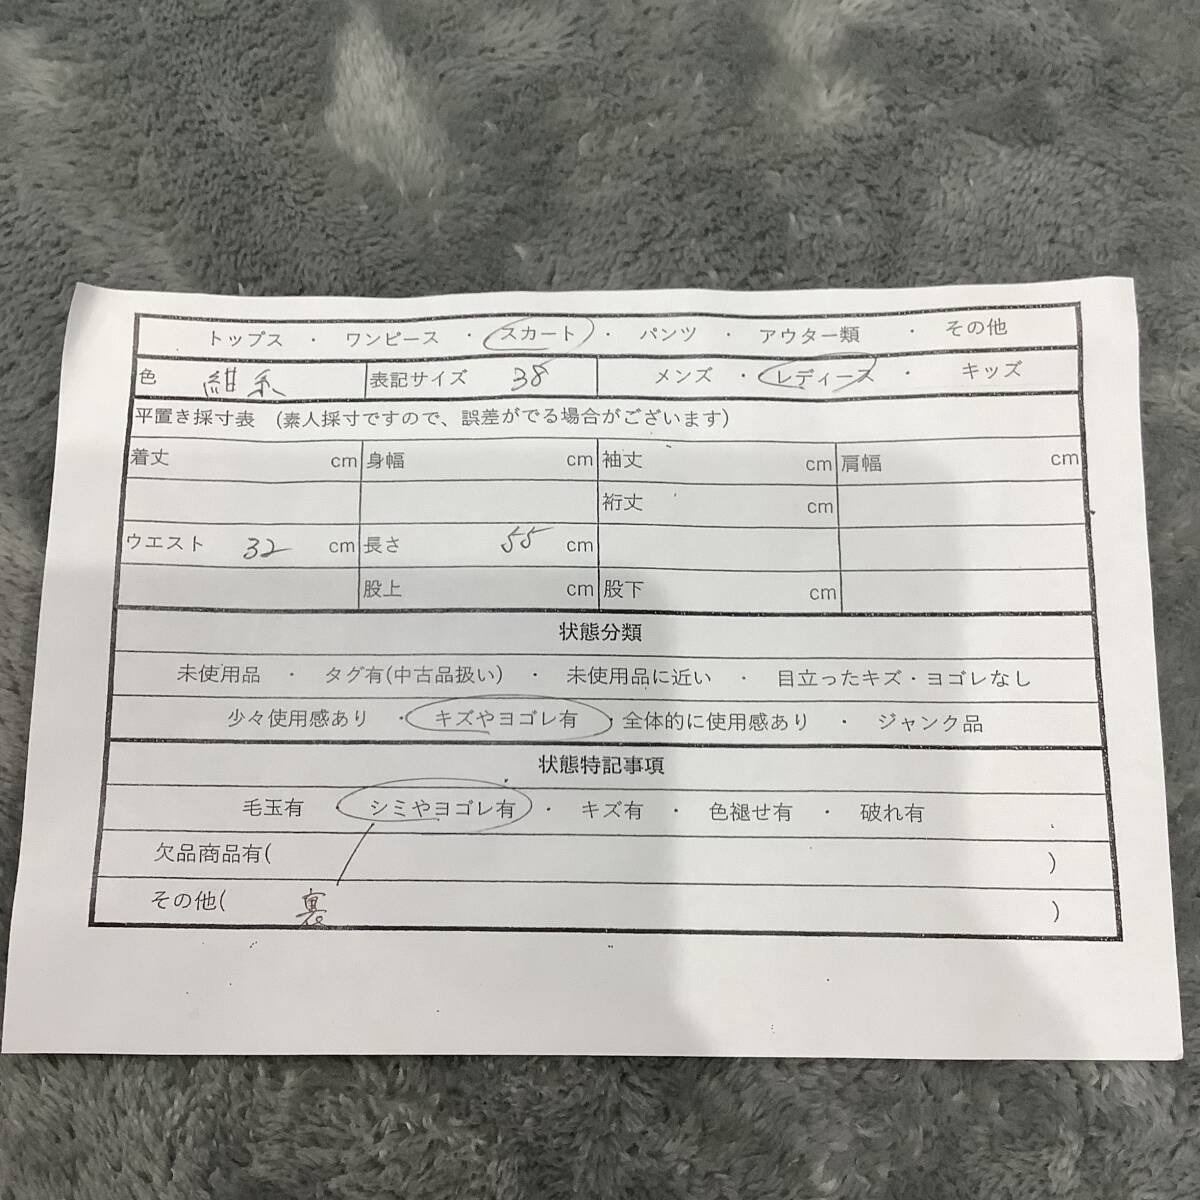 トップス ・ ワンピース ・ スカート ・ パンツ ・ アウター類 ・ その他
色 紺系 表記サイズ 38 メンズ ・ レディース ・ キッズ
平置き採寸表 (素人採寸ですので、誤差がでる場合がございます)
着丈 cm 身幅 cm 袖丈 cm 肩幅 cm
裄丈 cm
ウエスト 32 cm 長さ 55 cm
股上 cm 股下 cm
状態分類
未使用品 ・ タグ有(中古品扱い) ・ 未使用品に近い ・ 目立ったキズ・ヨゴレなし
少々使用感あり ・ キズやヨゴレ有 ・ 全体的に使用感あり ・ ジャンク品
状態特記事項
毛玉有 ・ シミやヨゴレ有 ・ キズ有 ・ 色褪せ有 ・ 破れ有
欠品商品有( )
その他( 裏 )